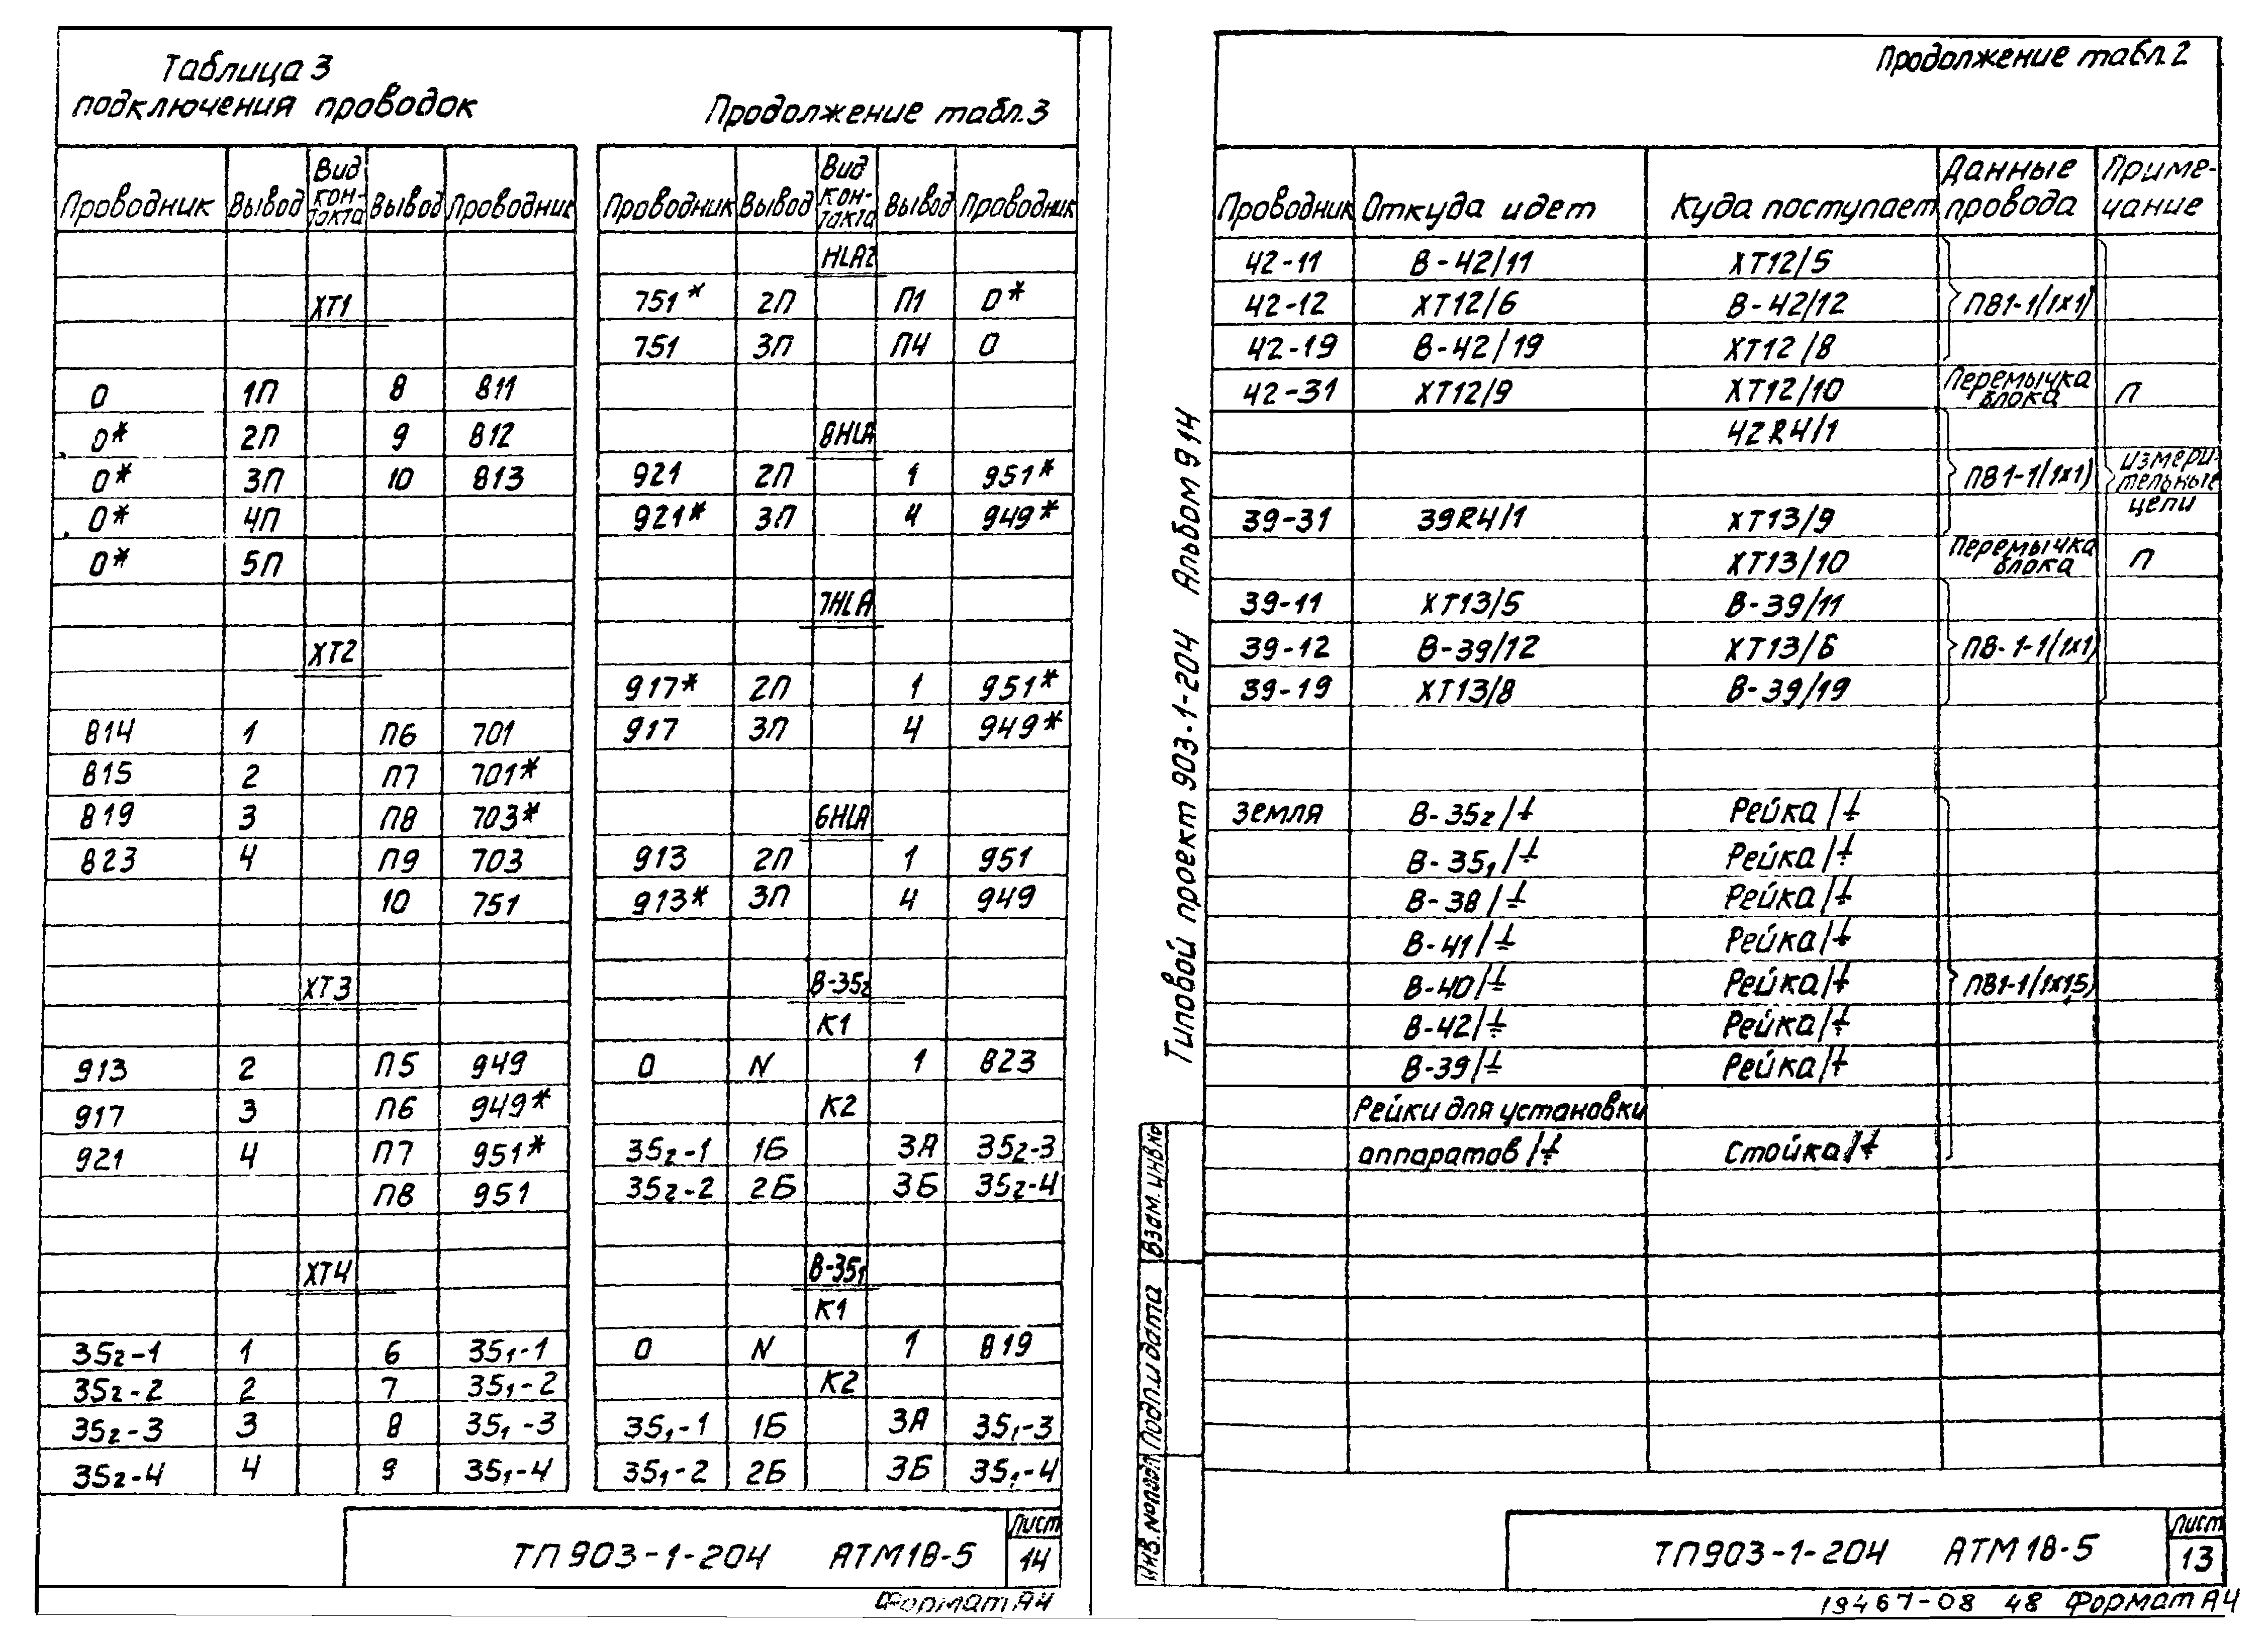 Таблица 3
подключения проводок
Проводник Вывод Вид кон-такта Вывод Проводник
ХТ1
0 1П 8 811
0* 2П 9 812
0* 3П 10 813
0* 4П
0* 5П
ХТ2
814 1 П6 701
815 2 П7 701*
819 3 П8 703*
823 4 П9 703
10 751
ХТ3
913 2 П5 949
917 3 П6 949*
921 4 П7 951*
П8 951
ХТ4
35₂-1 1 6 35₁-1
35₂-2 2 7 35₁-2
35₂-3 3 8 35₁-3
35₂-4 4 9 35₁-4
Продолжение табл.3
Проводник Вывод Вид кон-такта Вывод Проводник
HLA2
751* 2П П1 0*
751 3П П4 0
8HLA
921 2П 1 951*
921* 3П 4 949*
7HLA
917* 2П 1 951*
917 3П 4 949*
6HLA
913 2П 1 951
913* 3П 4 949
В-35₂
К1
0 N 1 823
К2
35₂-1 1Б 3А 35₂-3
35₂-2 2Б 3Б 35₂-4
В-35₁
К1
0 N 1 819
К2
35₁-1 1Б 3А 35₁-3
35₁-2 2Б 3Б 35₁-4
ТП903-1-204 АТМ18-5
Лист
14
Формат А4
Продолжение табл.2
Проводник Откуда идет Куда поступает Данные провода Приме-чание
42-11 В-42/11 ХТ12/5
42-12 ХТ12/6 В-42/12 ПВ1-1/(1х1)
42-19 В-42/19 ХТ12/8
42-31 ХТ12/9 ХТ12/10 Перемычка блока П
42R4/1
ПВ1-1/(1х1) измери-тельные цепи
39-31 39R4/1 ХТ13/9
ХТ13/10 Перемычка блока П
39-11 ХТ13/5 В-39/11
39-12 В-39/12 ХТ13/6 ПВ-1-1/(1х1)
39-19 ХТ13/8 В-39/19
Земля В-35₂/⏚ Рейка/⏚
В-35₁/⏚ Рейка/⏚
В-38/⏚ Рейка/⏚
В-41/⏚ Рейка/⏚
В-40/⏚ Рейка/⏚ ПВ1-1/(1х1,5)
В-42/⏚ Рейка/⏚
В-39/⏚ Рейка/⏚
Рейки для установки
аппаратов/⏚ Стойка/⏚
Типовой проект 903-1-204 Альбом 9 14
Взам. инв.№
Подп. и дата
Инв. №подл.
ТП903-1-204 АТМ18-5
Лист
13
19467-08 48 Формат А4